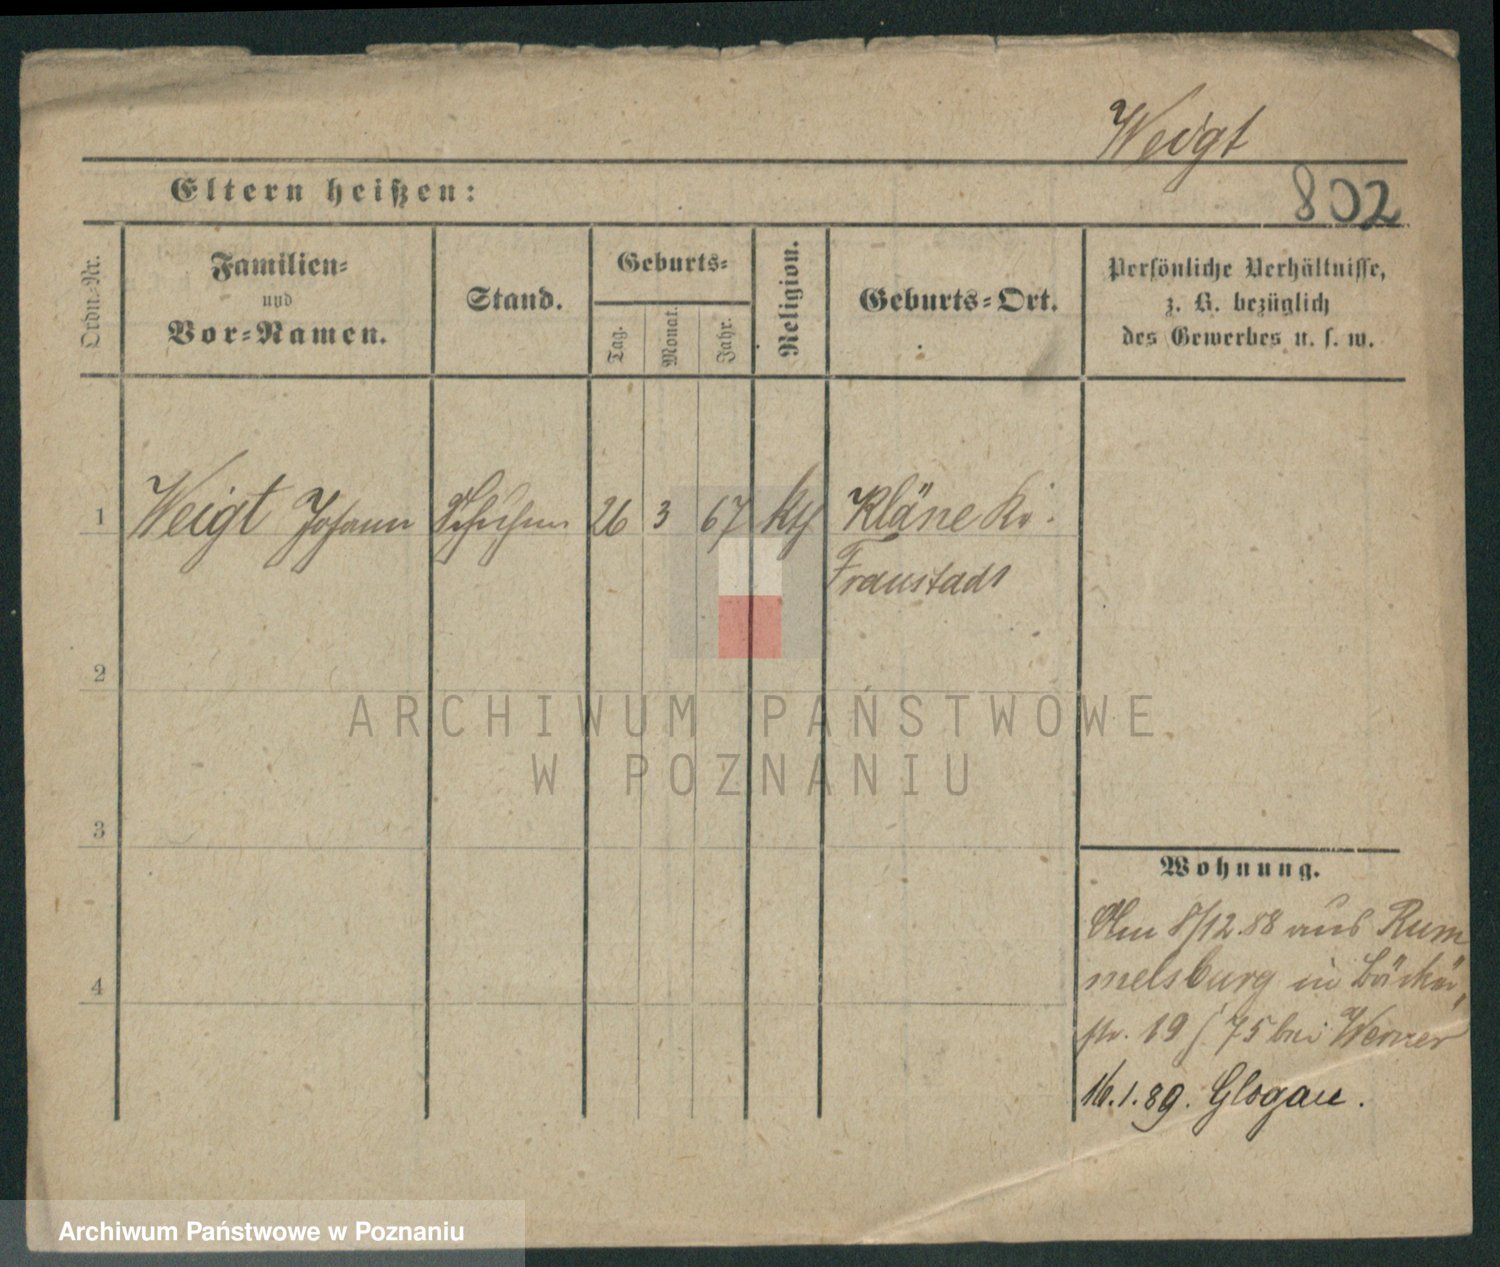 Weigt
Eltern heißen:
802
Ordn.-Nr.
Familien-
und
Vor-Namen.
Stand.
Geburts-
Tag.
Monat.
Jahr.
Religion.
Geburts-Ort.
Persönliche Verhältnisse,
z. B. bezüglich
des Gewerbes u. s. w.
1 Weigt Johann 26 3 67 Kth Kläne Kr.
Fraustadt
2
ARCHIWUM PAŃSTWOWE
W POZNANIU
3
Wohnung.
8/12.88 aus Rum
melsburg in Bäcker
str. 19 / 75 bei Werner
4
16.1.89. Glogau.
Archiwum Państwowe w Poznaniu